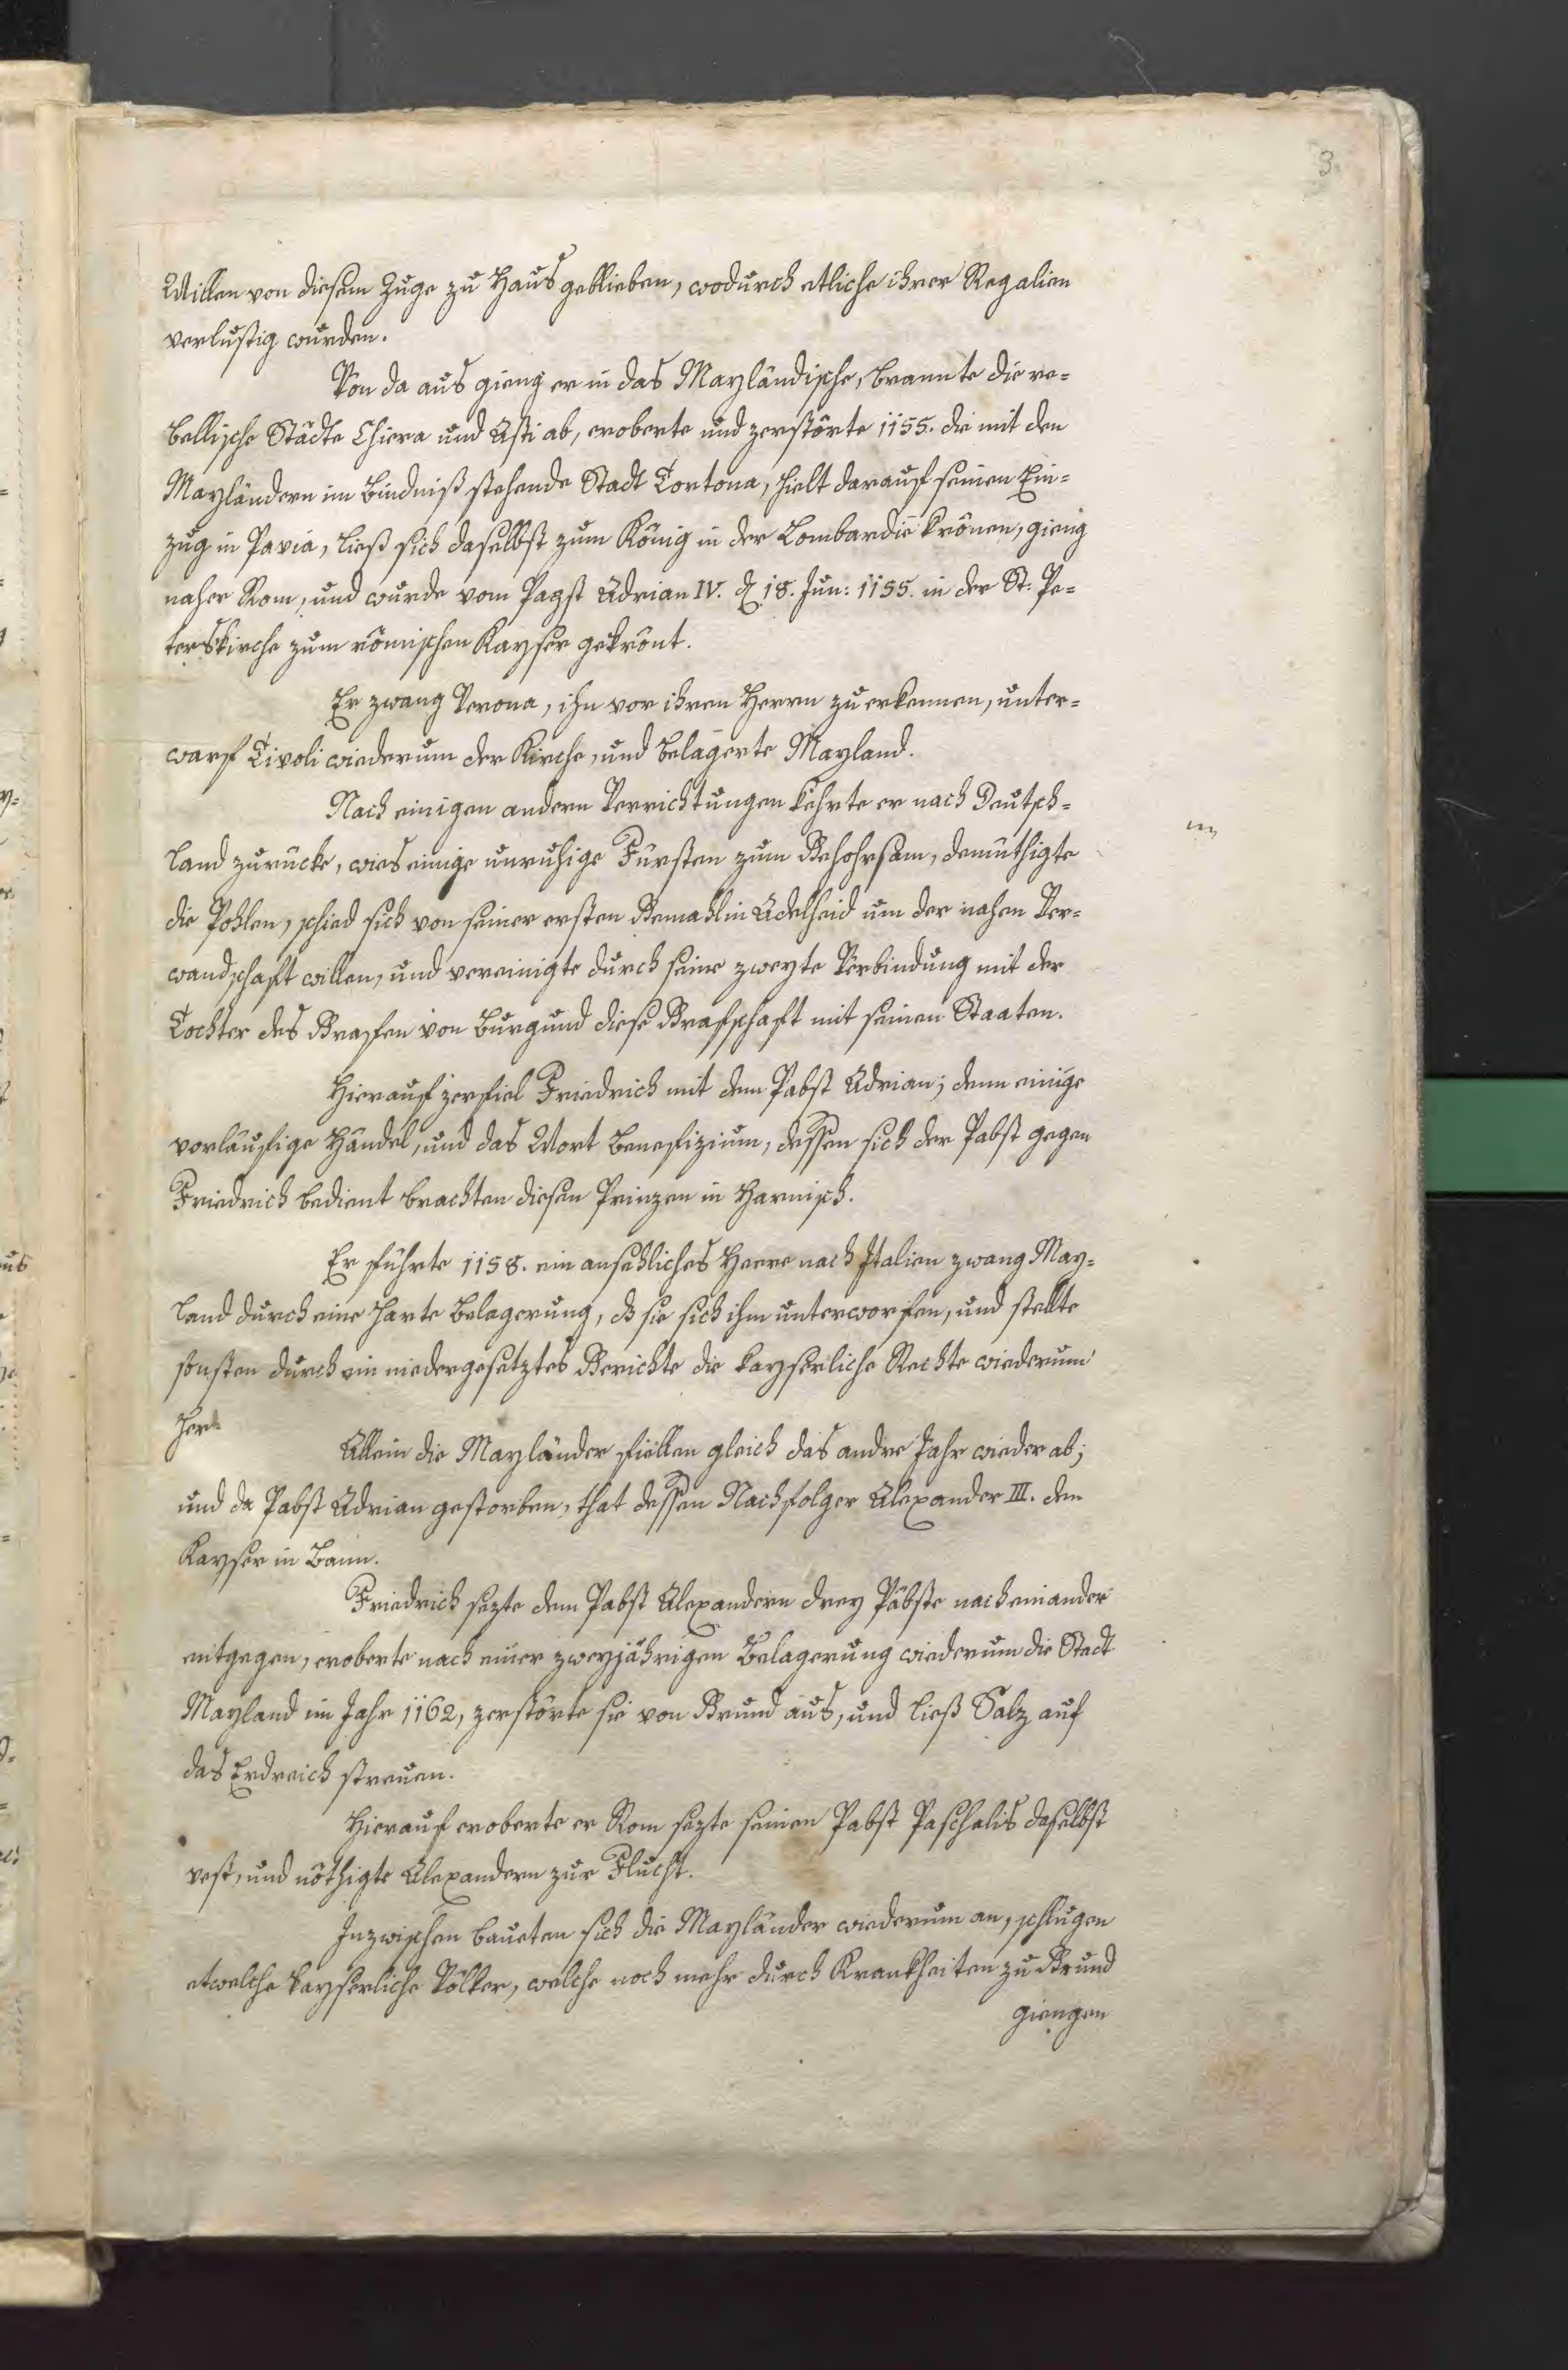 3
Willen von diesem Zuge zu Haus geblieben, wodurch etliche ihrer Regalien
verlustig wurden.
Von da aus gieng er in das Mayländische, brannte die re=
bellische Städte Chiera und Asti ab, eroberte und zerstörte 1155. die mit den
Mayländern im Bindniß stehende Stadt Tortona, hielt darauf seinen Ein=
zug in Pavia, ließ sich daselbst zum König in der Lombardie krönen, gieng
naher Rom, und wurde vom Papst Adrian IV. d. 18. Jun: 1155. in der St: Pe=
terskirche zum römischen Kayser gekrönt.
Er zwang Verona, ihn vor ihren Herrn zu erkennen, unter=
warf Tivoli wiederum der Kirche, und belagerte Mayland.
Nach einigen andern Verrichtungen kehrte er nach Deutsch=
land zurücke, wies einige unruhige Fürsten zum Gehohrsam, demüthigte
die Pohlen, schied sich von seiner ersten Gemahlin Adelheid um der nahen Ver=
wandschaft willen, und vereinigte durch seine zweyte Verbindung mit der
Tochter des Grafen von Burgund diese Grafschaft mit seinen Staaten.
Hierauf zerfiel Friedrich mit dem Pabst Adrian; denn einige
vorläufige Händel, und das Wort Benefizium, dessen sich der Pabst gegen
Friedrich bedient brachten diesen Prinzen in Harnisch.
Er führte 1158. ein ansehliches Heere nach Italien zwang May=
land durch eine harte Belagerung, daß sie sich ihm unterworfen, und stellte
sonsten durch ein niedergesetztes Gerichte die kayserliche Rechte wiederum
her.
Allein die Mayländer fiellen gleich das andre Jahr wieder ab;
und da Pabst Adrian gestorben, that dessen Nachfolger Alexander III. den
Kayser in Bann.
Friedrich sezte dem Pabst Alexandern drey Päbste nach einander
entgegen, eroberte nach einer zweyjährigen Belagerung wiederum die Stadt
Mayland im Jahr 1162, zerstörte sie von Grund aus, und ließ Salz auf
das Erdreich streuen.
Hierauf eroberte er Rom sezte seinen Pabst Paschalis daselbst
vest, und nöthigte Alexandern zur Flucht.
Inzwischen baueten sich die Mayländer wiederum an, schlugen
etwelche kayserliche Völker, welche noch mehr durch Krankheiten zu Grund
giengen